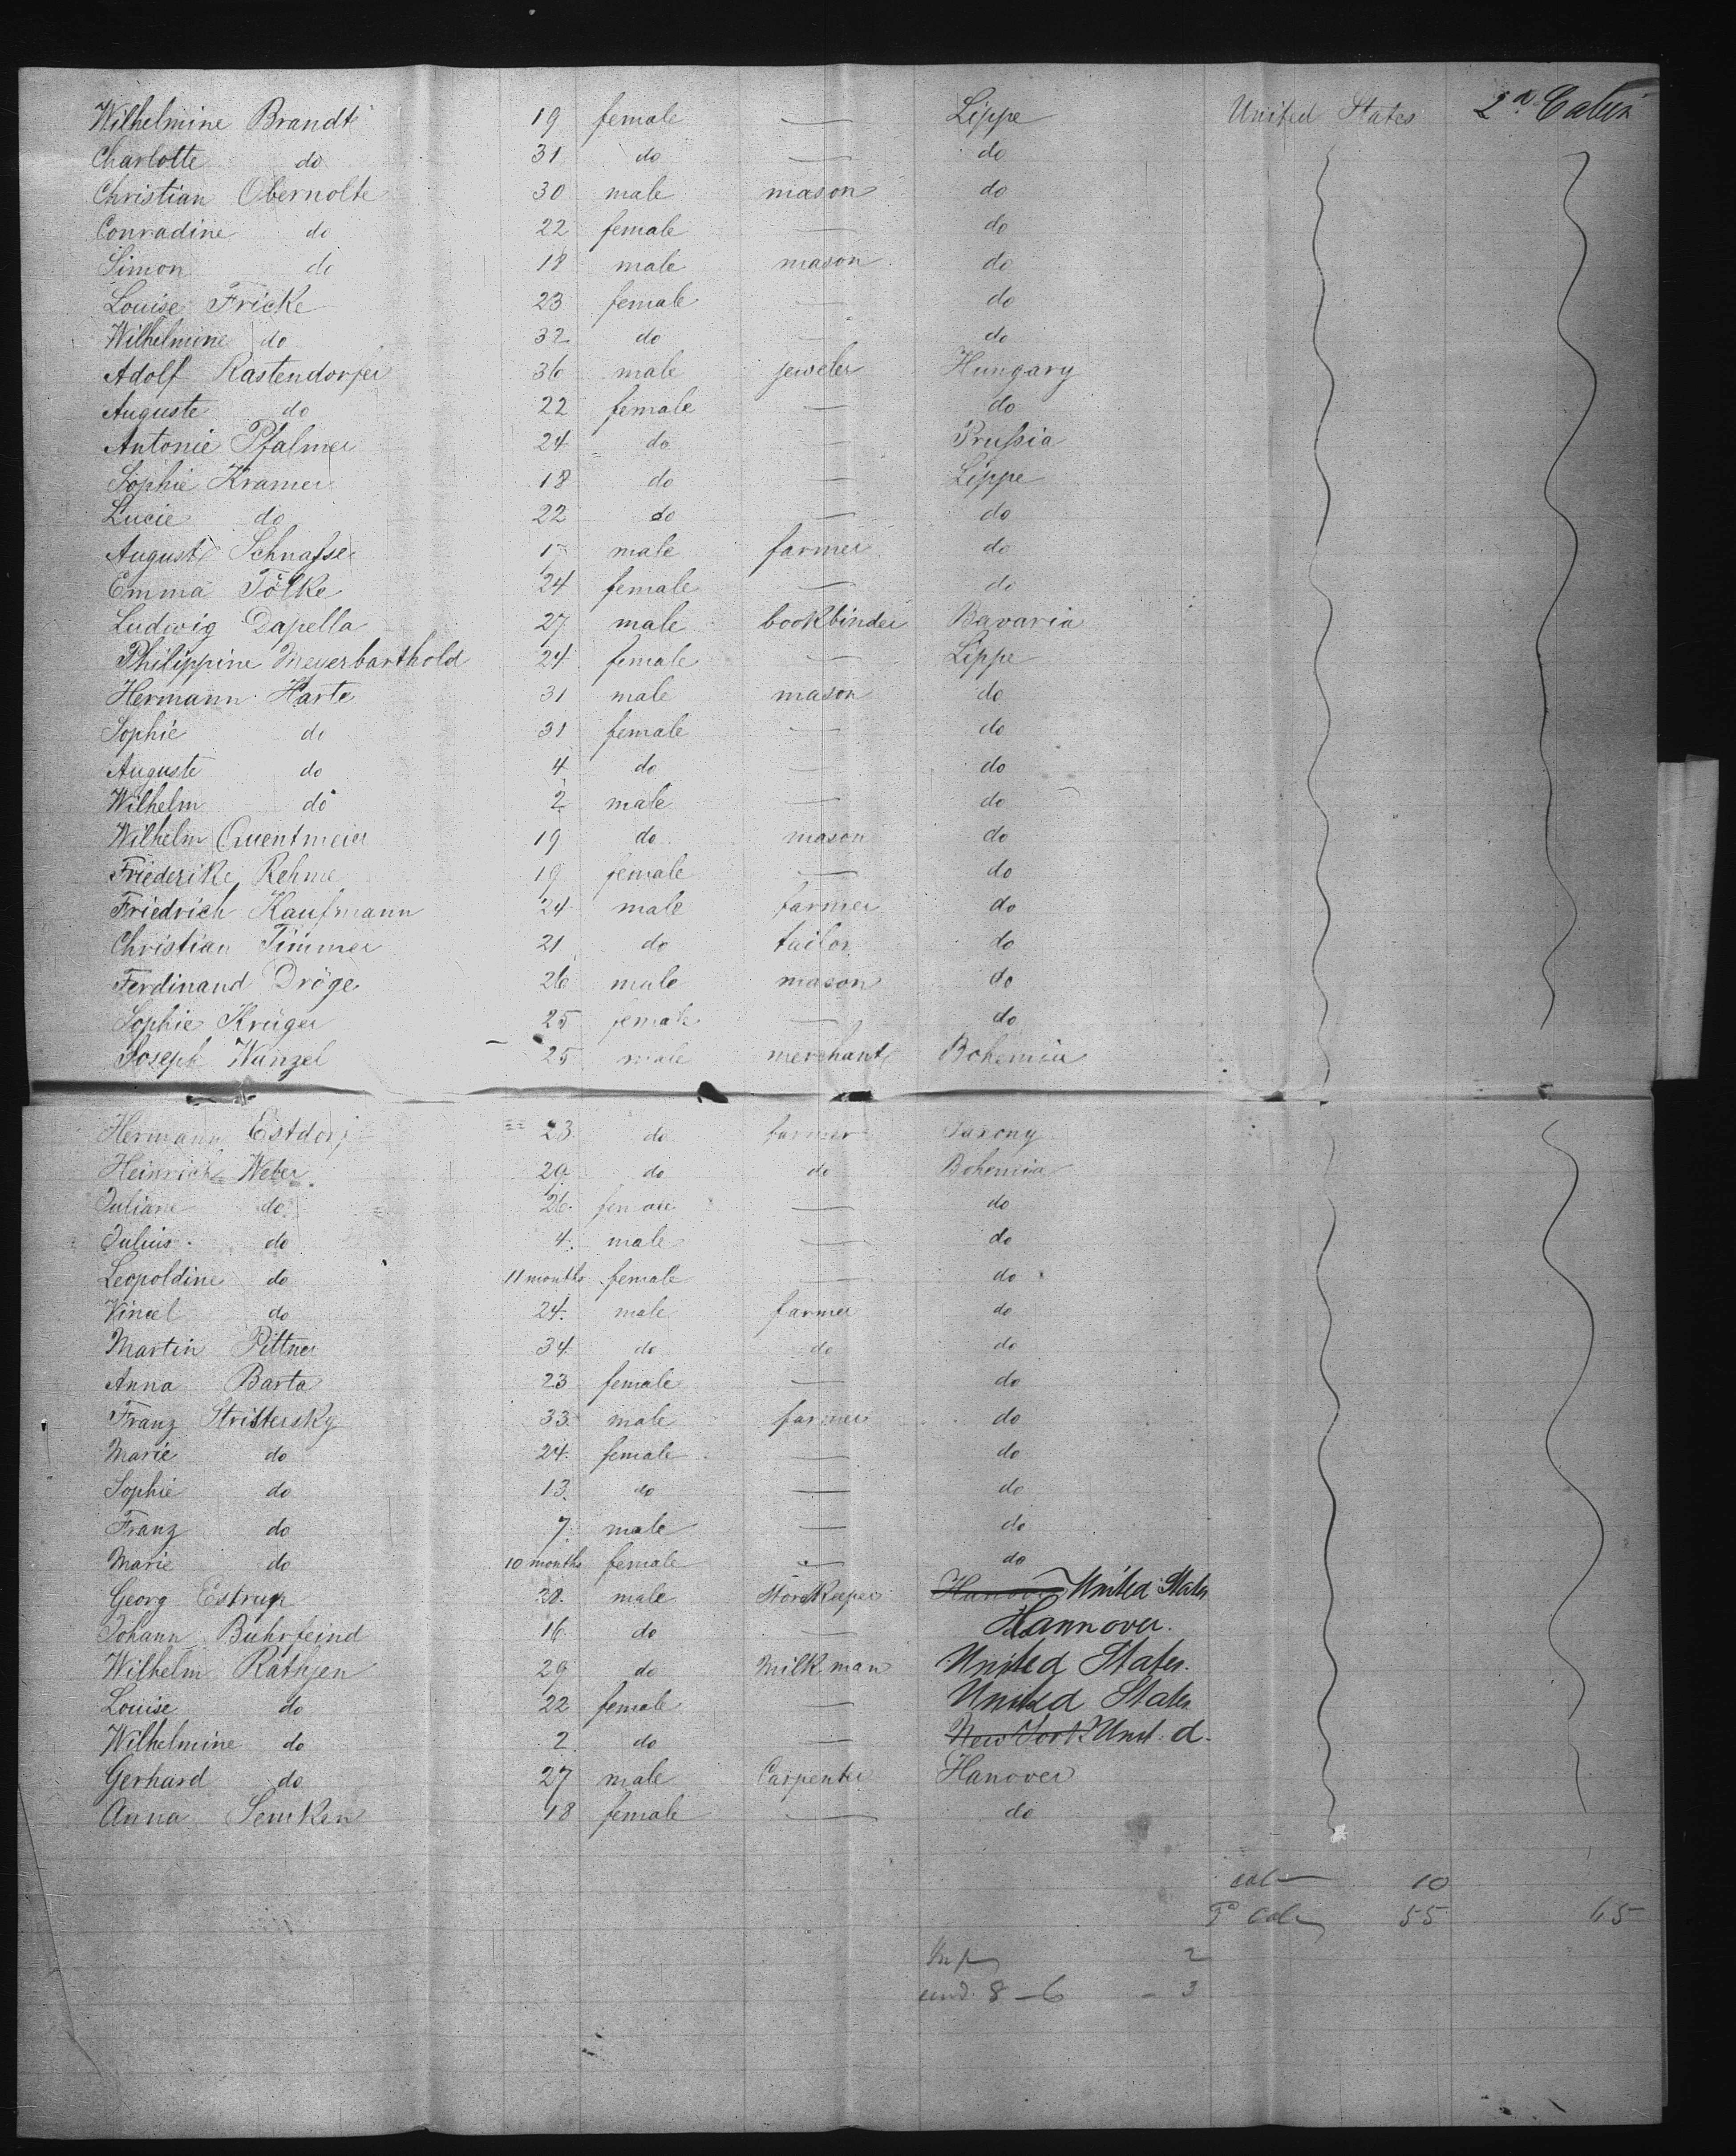 Wilhelmine Brandt 19 female — Lippe United States 2d Cabin
Charlotte do 31 do — do
Christian Obernolte 30 male mason do
Conradine do 22 female — do
Simon do 18 male mason do
Louise Fricke 23 female — do
Wilhelmine do 32 do — do
Adolf Rastendorfer 36 male jeweler Hungary
Auguste do 22 female — do
Antonie Pfalmer 24 do — Prussia
Sophie Kramer 18 do — Lippe
Lucie do 22 do — do
August Schnasse 17 male farmer do
Emma Tölke 24 female — do
Ludwig Dapella 27 male bookbinder Bavaria
Philippine Meyerbarthold 24 female — Lippe
Hermann Harte 31 male mason do
Sophie do 31 female — do
Auguste do 4 do — do
Wilhelm do 2 male — do
Wilhelm Quentmeier 19 do mason do
Friederike Rehme 19 female — do
Friedrich Kaufmann 24 male farmer do
Christian Timmer 21 do tailor do
Ferdinand Dröge 26 male mason do
Sophie Krüger 25 female — do
Joseph Wanzel 25 male merchant Bohemia
Hermann Estdorf 23 do farmer Saxony
Heinrich Weber 29 do do Bohemia
Juliane do 26 female — do
Julius do 4 male — do
Leopoldine do 11 months female — do
do 24 male farmer do
Martin Pittner 34 do do do
Anna Barta 23 female — do
Franz Strittersky 33 male farmer do
Marie do 24 female — do
Sophie do 13 do — do
Franz do 7 male — do
Marie do 10 months female — do
Georg Estrup male Storekeeper Hanover United States
Johann Buhrfeind 16 do — Hannover.
Wilhelm Rathjen 29 do Milkman United States.
Louise do 22 female — United States
Wilhelmine do 2 do — New York Unit. d.
Gerhard do 27 male Carpenter Hanover
Anna Semken 18 female — do
10
55 65
2
und. 8 – 6 – 3